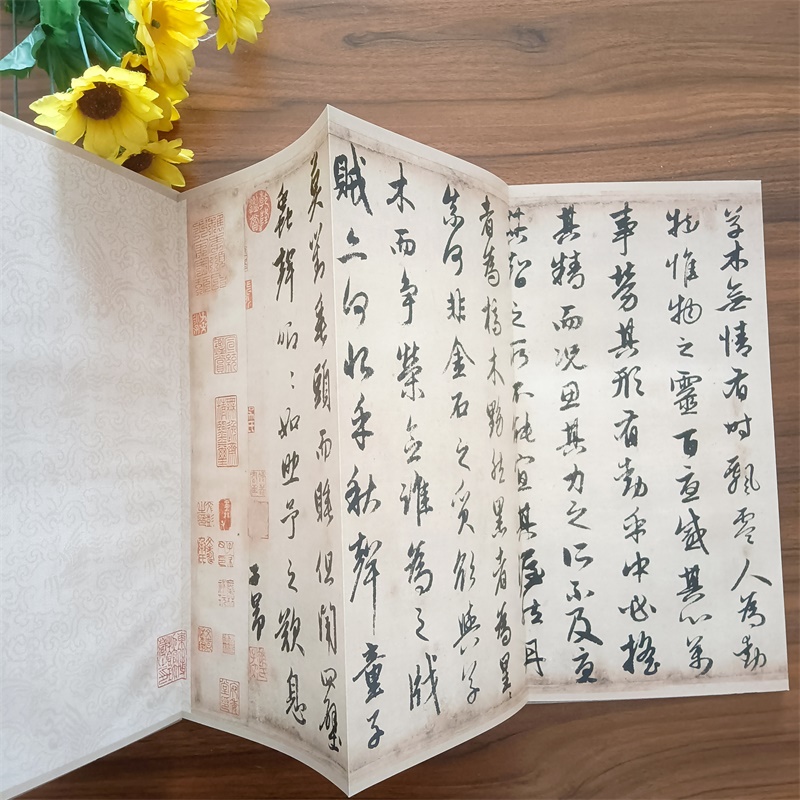 草木無情有時飄零人為動
物惟物之靈百憂感其心萬
事勞其形有動乎中必搖
其精而况思其力之所不及憂
其智之所不能宜其渥然丹
者為槁木黟然黑者為星
奈何非金石之質欲與草
木而爭榮念誰為之戕
賊亦何恨乎秋聲童子
莫對垂頭而睡但聞四壁
蟲聲唧〻如助予之歎息
子昂